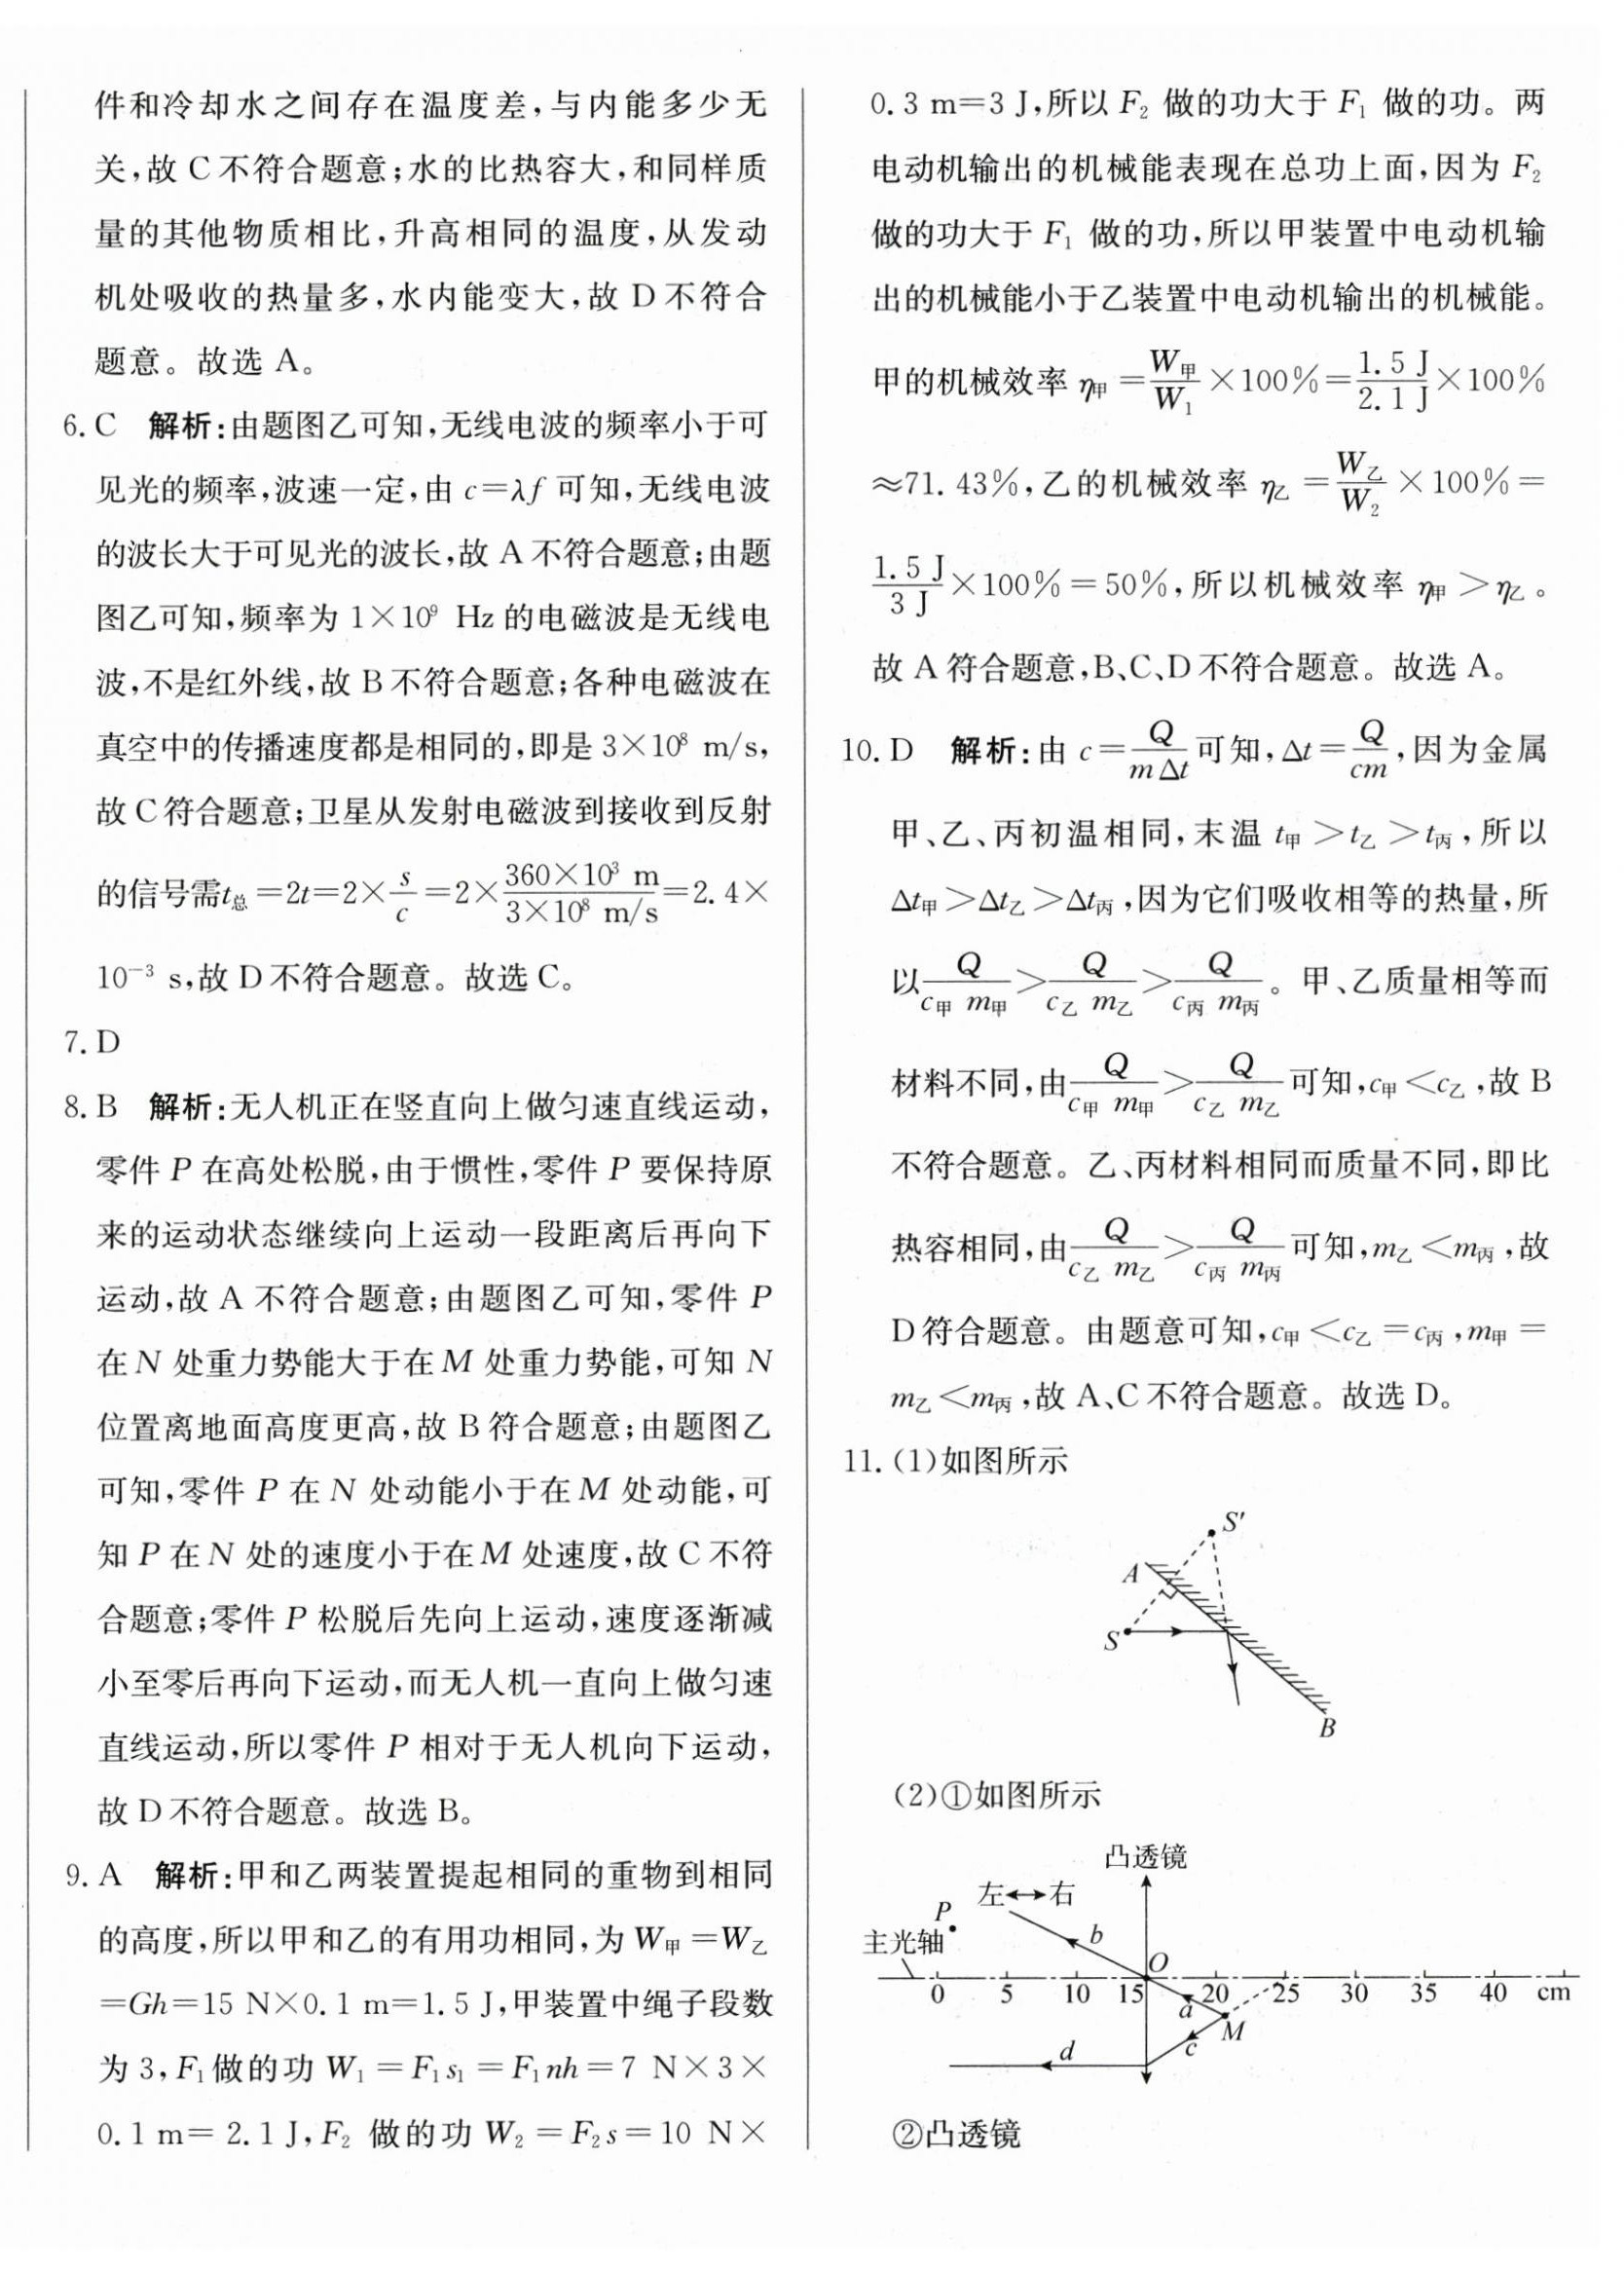 件和冷却水之间存在温度差,与内能多少无
关,故 C 不符合题意;水的比热容大,和同样质
量的其他物质相比,升高相同的温度,从发动
机处吸收的热量多,水内能变大,故 D 不符合
题意。故选 A。
6. C 解析:由题图乙可知,无线电波的频率小于可
见光的频率,波速一定,由 c=λf 可知,无线电波
的波长大于可见光的波长,故 A 不符合题意;由题
图乙可知,频率为 1×10⁹ Hz 的电磁波是无线电
波,不是红外线,故 B 不符合题意;各种电磁波在
真空中的传播速度都是相同的,即是 3×10⁸ m/s,
故 C 符合题意;卫星从发射电磁波到接收到反射
的信号需t总=2t=2×s/c=2×(360×10³ m)/(3×10⁸ m/s)=2.4×
10⁻³ s,故 D 不符合题意。故选 C。
7. D
8. B 解析:无人机正在竖直向上做匀速直线运动,
零件 P 在高处松脱,由于惯性,零件 P 要保持原
来的运动状态继续向上运动一段距离后再向下
运动,故 A 不符合题意;由题图乙可知,零件 P
在 N 处重力势能大于在 M 处重力势能,可知 N
位置离地面高度更高,故 B 符合题意;由题图乙
可知,零件 P 在 N 处动能小于在 M 处动能,可
知 P 在 N 处的速度小于在 M 处速度,故 C 不符
合题意;零件 P 松脱后先向上运动,速度逐渐减
小至零后再向下运动,而无人机一直向上做匀速
直线运动,所以零件 P 相对于无人机向下运动,
故 D 不符合题意。故选 B。
9. A 解析:甲和乙两装置提起相同的重物到相同
的高度,所以甲和乙的有用功相同,为 W甲=W乙
=Gh=15 N×0.1 m=1.5 J,甲装置中绳子段数
为 3,F₁做的功 W₁=F₁s₁=F₁nh=7 N×3×
0.1 m= 2.1 J,F₂ 做的功 W₂=F₂s=10 N×
0.3 m=3 J,所以 F₂ 做的功大于 F₁ 做的功。两
电动机输出的机械能表现在总功上面,因为 F₂
做的功大于 F₁ 做的功,所以甲装置中电动机输
出的机械能小于乙装置中电动机输出的机械能。
甲的机械效率 η甲=W甲/W₁×100%=1.5 J/2.1 J×100%
≈71.43%,乙的机械效率 η乙=W乙/W₂×100%=
1.5 J/3 J×100%=50%,所以机械效率 η甲>η乙。
故 A 符合题意,B、C、D 不符合题意。故选 A。
10. D 解析:由 c=Q/(mΔt)可知,Δt=Q/(cm),因为金属
甲、乙、丙初温相同,末温 t甲>t乙>t丙,所以
Δt甲>Δt乙>Δt丙,因为它们吸收相等的热量,所
以Q/(c甲 m甲)>Q/(c乙 m乙)>Q/(c丙 m丙)。甲、乙质量相等而
材料不同,由Q/(c甲 m甲)>Q/(c乙 m乙)可知,c甲<c乙,故 B
不符合题意。乙、丙材料相同而质量不同,即比
热容相同,由Q/(c乙 m乙)>Q/(c丙 m丙)可知,m乙<m丙,故
D 符合题意。由题意可知,c甲<c乙=c丙,m甲=
m乙<m丙,故 A、C 不符合题意。故选 D。
11. (1)如图所示
S′
A
S
B
(2)①如图所示
凸透镜
左↔右
P
b
主光轴
O
0 5 10 15 20 25 30 35 40 cm
a
M
c
d
②凸透镜